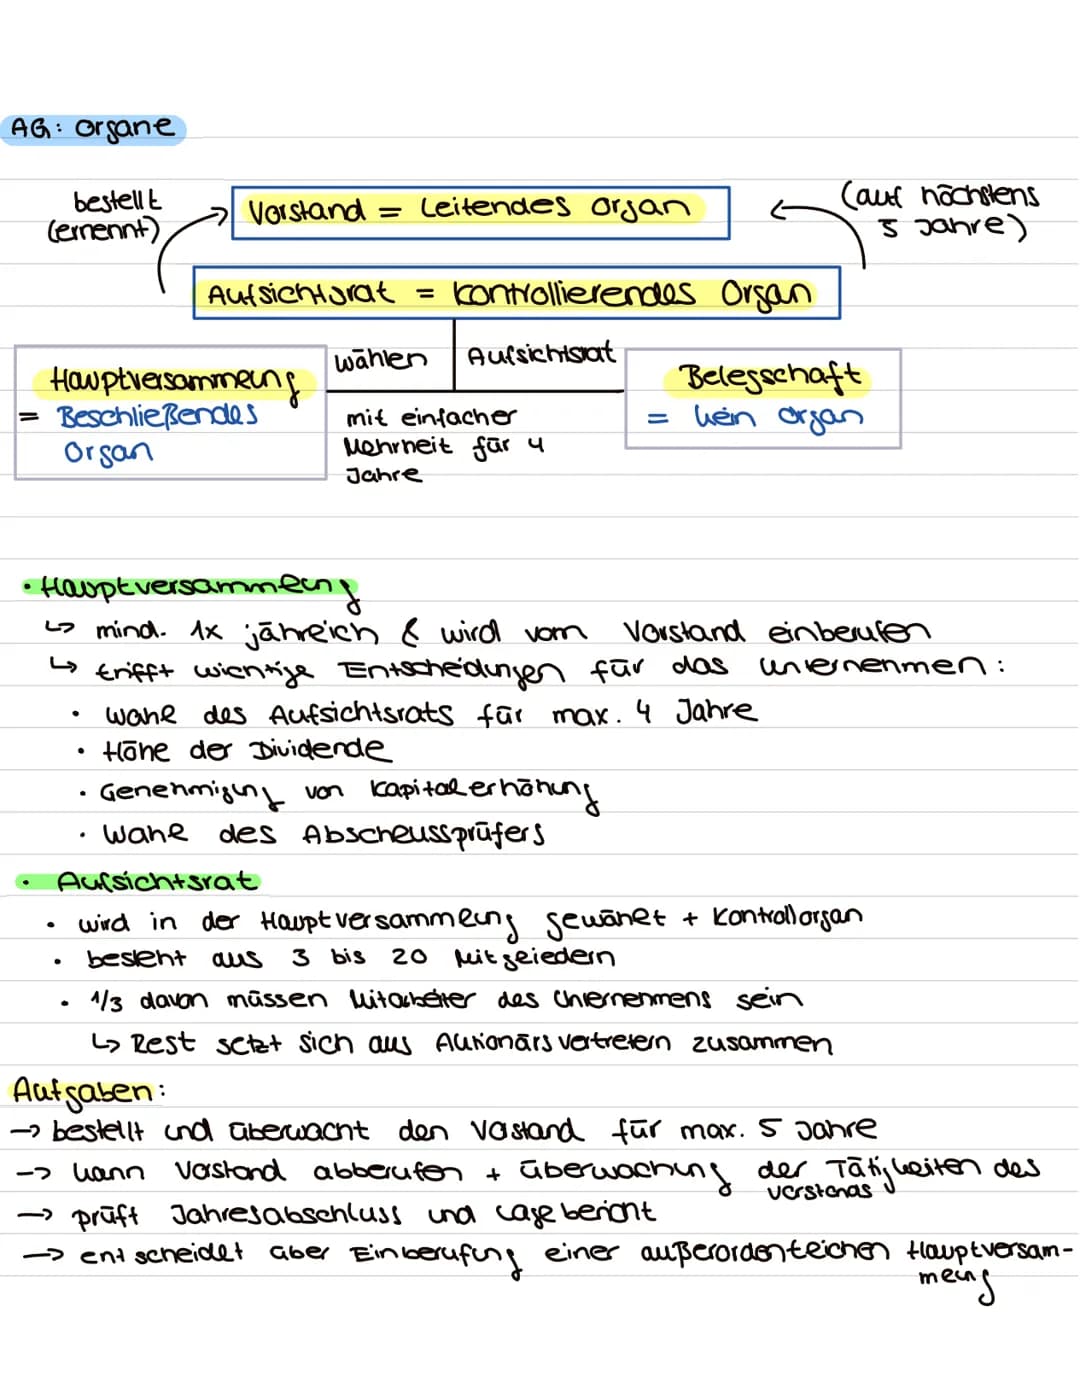 AG: Organe
bestellt
(ernennt)
Vorstand = Leitendes Organ
(auf höchstens
5 Jahre)
Aufsichtsrat = kontrollierendes Organ
wählen Aufsichtsrat
Hauptversammlung
= Beschließendes
Organ
mit einfacher
Mehrheit für 4
Jahre
Belegschaft
= kein Organ
• Hauptversammlung
↳ mind. 1x jährlich & wird vom Vorstand einberufen
↳ trifft wichtige Entscheidungen für das Unternehmen:
• Wahl des Aufsichtsrats für max. 4 Jahre
• Höhe der Dividende
• Genehmigung von Kapitalerhöhung
• Wahl des Abschlussprüfers
• Aufsichtsrat
• wird in der Hauptversammlung gewählt + Kontrollorgan
• besteht aus 3 bis 20 Mitgliedern
• 1/3 davon müssen Mitarbeiter des Unternehmens sein
↳ Rest setzt sich aus Aktionärsvertretern zusammen
Aufgaben:
→ bestellt und überwacht den Vorstand für max. 5 Jahre
→ kann Vorstand abberufen + Überwachung der Tätigkeiten des
Vorstands
→ prüft Jahresabschluss und Lagebericht
→ entscheidet über Einberufung einer außerordentlichen Hauptversam-
mlung